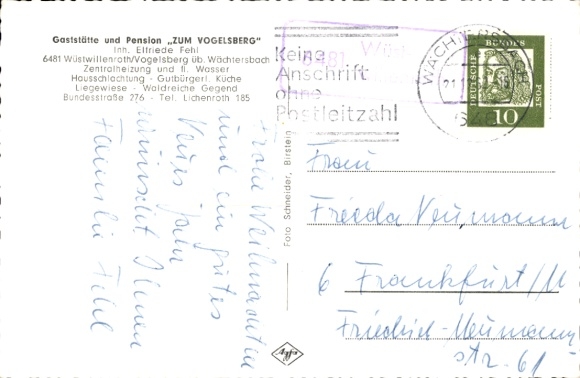 Gaststätte und Pension „ZUM VOGELSBERG“
Inh. Elfriede Fehl
6481 Wüstwillenroth/Vogelsberg üb. Wächtersbach
Zentralheizung und fl. Wasser
Hausschlachtung - Gutbürgerl. Küche
Liegewiese - Waldreiche Gegend
Bundesstraße 276 - Tel. Lichenroth 185
Frohe Weihnachten
und ein gutes
Neues Jahr
wünscht Ihnen
Familie Fehl
Foto Schneider, Birstein
Agfa
6481 Wüst
Keine
Anschrift
ohne
Postleitzahl
DEUTSCHE BUNDES POST
10
Frau
Frieda Neumann
6 Frankfurt/M
Friedrich-Neumann
str. 61